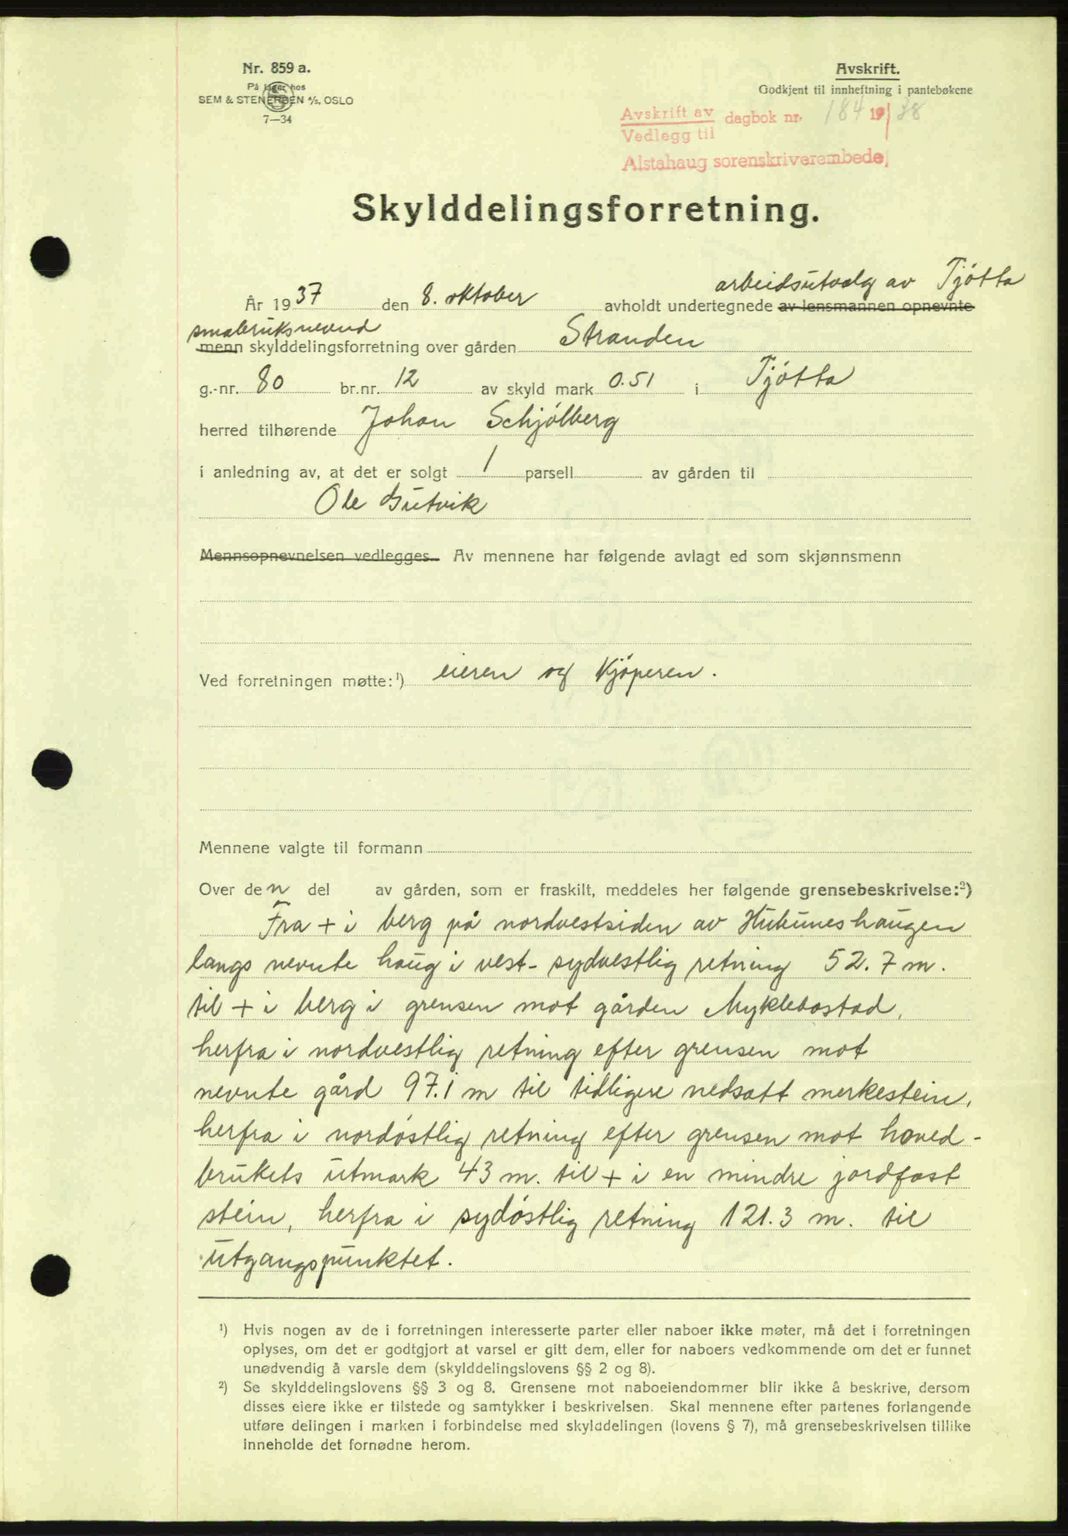 Nr. 859 a.
På lager hos
SEM & STENERSEN A/S, OSLO
7—34
Avskrift.
Godkjent til innheftning i pantebøkene
Avskrift av
Vedlegg til
dagbok nr. 184 19/38
Alstahaug sorenskriverembede
Skylddelingsforretning.
arbeidsutvalg av Tjötta
År 1937 den 8. oktober avholdt undertegnede av lensmannen opnevnte
småbruksnevnd
menn skylddelingsforretning over gården Stranden
g.-nr. 80 br.nr. 12 av skyld mark 0.51 i Tjötta
herred tilhørende Johan Schjölberg
i anledning av, at det er solgt 1 parsell av gården til
Ole Gutvik
Mennsopnevnelsen vedlegges. Av mennene har følgende avlagt ed som skjønnsmenn
Ved forretningen møtte:¹) eieren og kjöperen.
Mennene valgte til formann
Over den del av gården, som er fraskilt, meddeles her følgende grensebeskrivelse:²)
Fra + i berg på nordvestsiden av Hukuneshaugen
langs nevnte haug i vest- sydvestlig retning 52.7 m.
til + i berg i grensen mot gården Myklebostad,
herfra i nordvestlig retning efter grensen mot
nevnte gård 97.1 m til tidligere nedsatt merkestein,
herfra i nordöstlig retning efter grensen mot hoved-
brukets utmark 43 m. til + i en mindre jordfast
stein, herfra i sydöstlig retning 121.3 m. til
utgangspunktet.
¹) Hvis nogen av de i forretningen interesserte parter eller naboer ikke møter, må det i forretningen
oplyses, om det er godtgjort at varsel er gitt dem, eller for naboers vedkommende om det er funnet
unødvendig å varsle dem (skylddelingslovens §§ 2 og 8).
²) Se skylddelingslovens §§ 3 og 8. Grensene mot naboeiendommer blir ikke å beskrive, dersom
disses eiere ikke er tilstede og samtykker i beskrivelsen. Skal mennene efter partenes forlangende
utføre delingen i marken i forbindelse med skylddelingen (lovens § 7), må grensebeskrivelsen tillike
inneholde det fornødne herom.